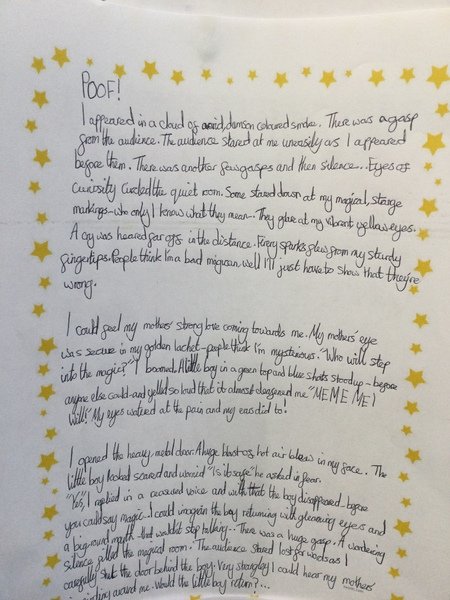 POOF!
I appeared in a cloud of acrid, damson coloured smoke. There was a gasp
from the audience. The audience stared at me uneasily as I appeared
before them. There was another few gasps and then silence... Eyes of
curiosity circled the quiet room. Some stared down at my magical, strange
markings - who only I know what they mean - They glare at my vibrant yellow eyes.
A cry was heard far off in the distance. Firery sparks flew from my sturdy
fingertips. People think I'm a bad magician. well I'll just have to show that they're
wrong.
I could feel my mothers' strong love coming towards me. My mothers' eye
was secure in my golden lachet - people think I'm mysterious. "Who will step
into the magic?" I boomed. A little boy in a green top and blue shorts stood up - before
anyone else could - and yelled so loud that it almost deafened me "ME ME ME I
will!" My eyes watered at the pain and my ears did to.
I opened the heavy metal door. A huge blast of hot air blew in my face. The
little boy looked scared and worried "Is it safe" he asked in fear.
"Yes", I replied in a reassured voice and with that the boy disappeared - before
you could say magic. I could imagain the boy returning with gleaming eyes and
a big round mouth that wouldn't stop talking.. There was a huge gasp. A wondering
silence filled the magical room. The audience stared lost for words as I
carefully shut the door behind the boy. Very strangley I could hear my mothers'
around me. Would the little boy return?...